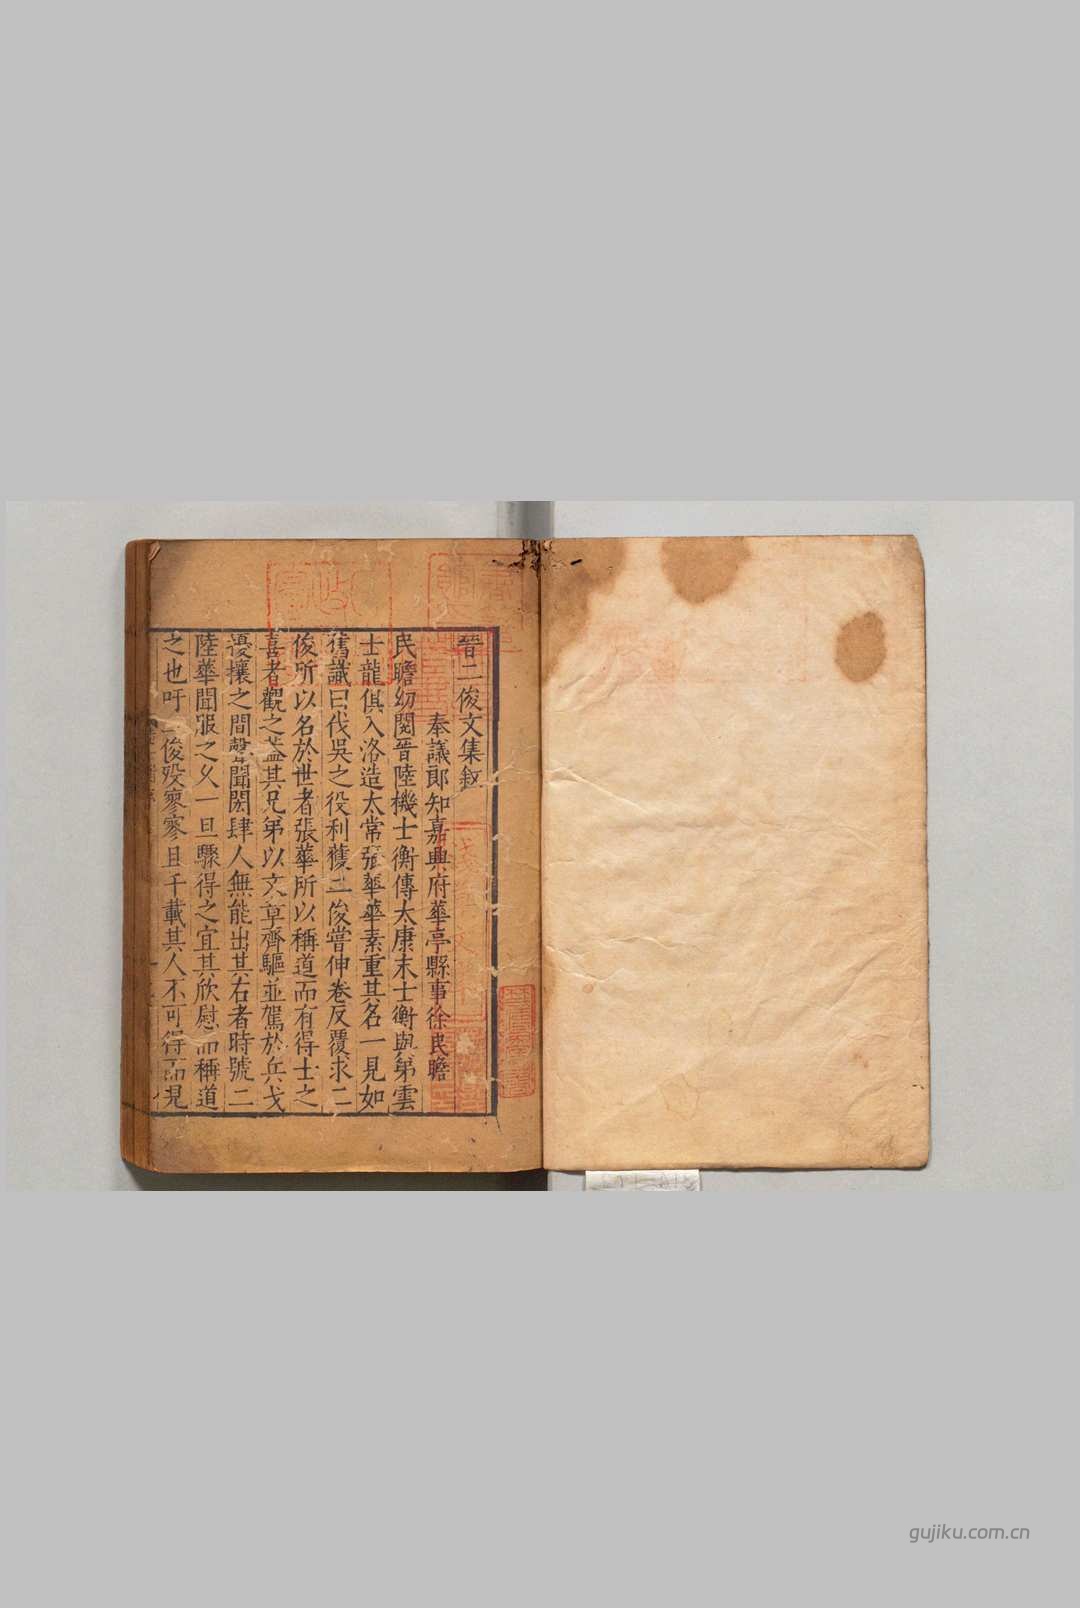 晉二俊文集敘
奉議郎知嘉興府華亭縣事徐民瞻
民瞻幼閱晉陸機士衡傳太康末士衡與弟雲
士龍俱入洛造太常張華華素重其名一見如
舊識曰伐吳之役利獲二俊嘗伸卷反覆求二
俊所以名於世者張華所以稱道而有得士之
喜者觀之蓋其兄弟以文章齊驅並駕於兵戈
擾攘之間聲聞閎肆人無能出其右者時號二
陸華聞服之久一旦驟得之宜其欣慰而稱道
之也吁二俊歿寥寥且千載其人不可得而見
gujiku.com.cn